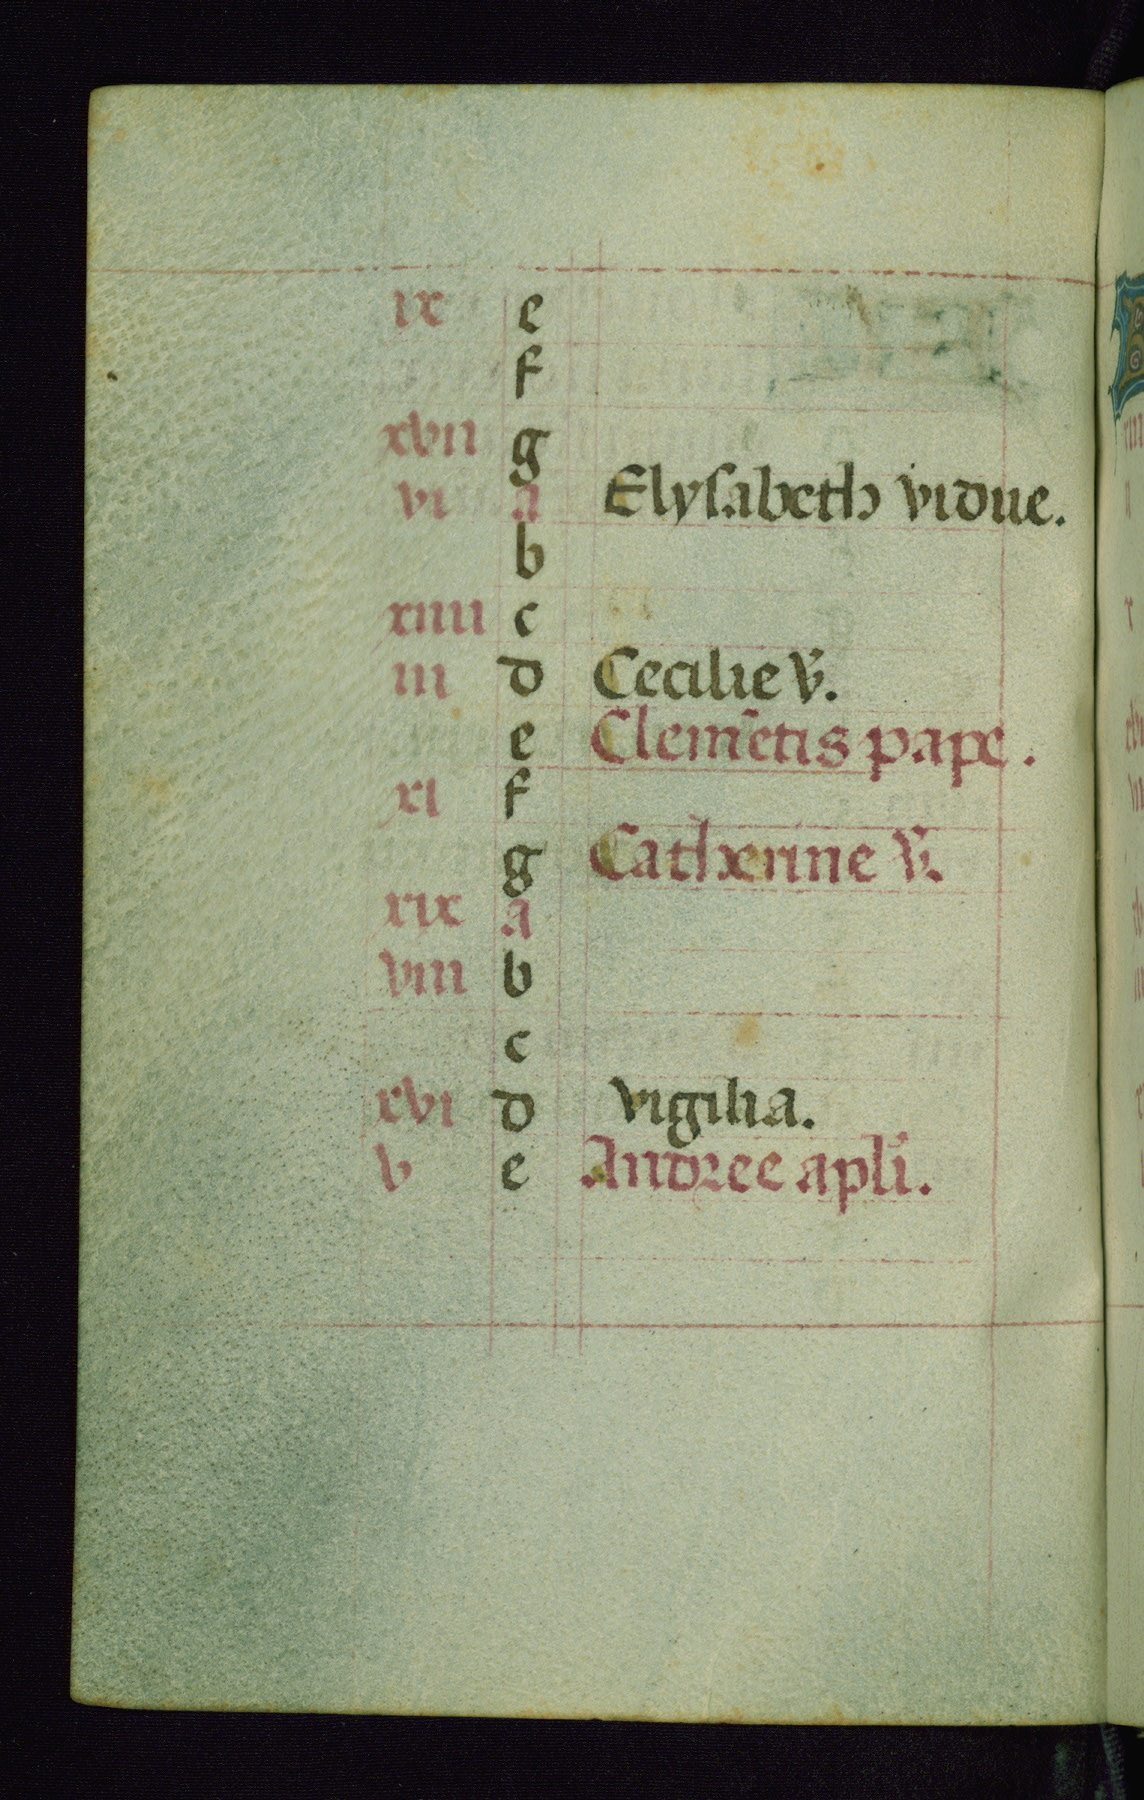 ix e
f
xvii g
vi a Elysabeth vidue.
b
xiiii c
iii d Cecilie v̄.
e Clemētis pape.
xi f
g Catherine v̄.
xix a
viii b
c
xvi d vigilia.
v e Andree apl̄i.